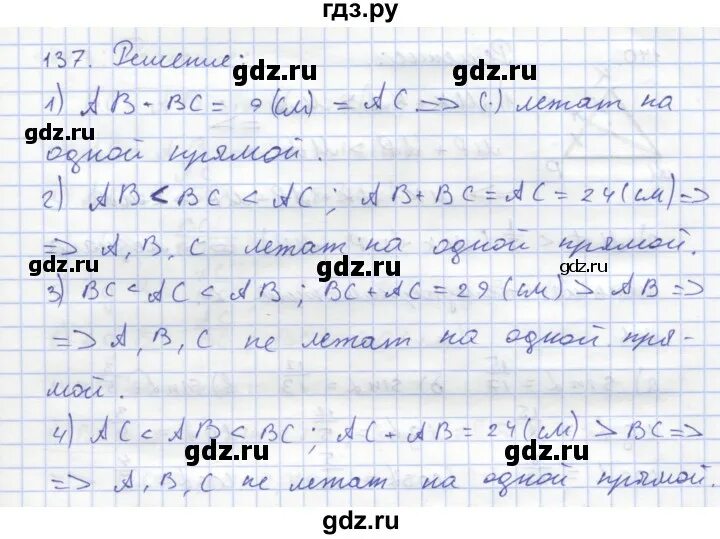 гдз.ру
137. Решение:
gdz.ru
1) AB + BC = 9 (см) = AC => (·) лежат на
gdz.ru
gdz.ru
одной прямой.
2) AB < BC < AC; AB + BC = AC = 24 (см) =>
gdz.ru
=> A, B, C лежат на одной прямой.
gdz.ru gdz.ru gdz.ru
3) BC < AC < AB; BC + AC = 29 (см) > AB =>
=> A, B, C не лежат на одной пря-
gdz.ru
gdz.ru
мой.
4) AC < AB < BC; AC + AB = 24 (см) > BC =>
gdz.ru gdz.ru
=> A, B, C не лежат на одной прямой.
gdz.ru